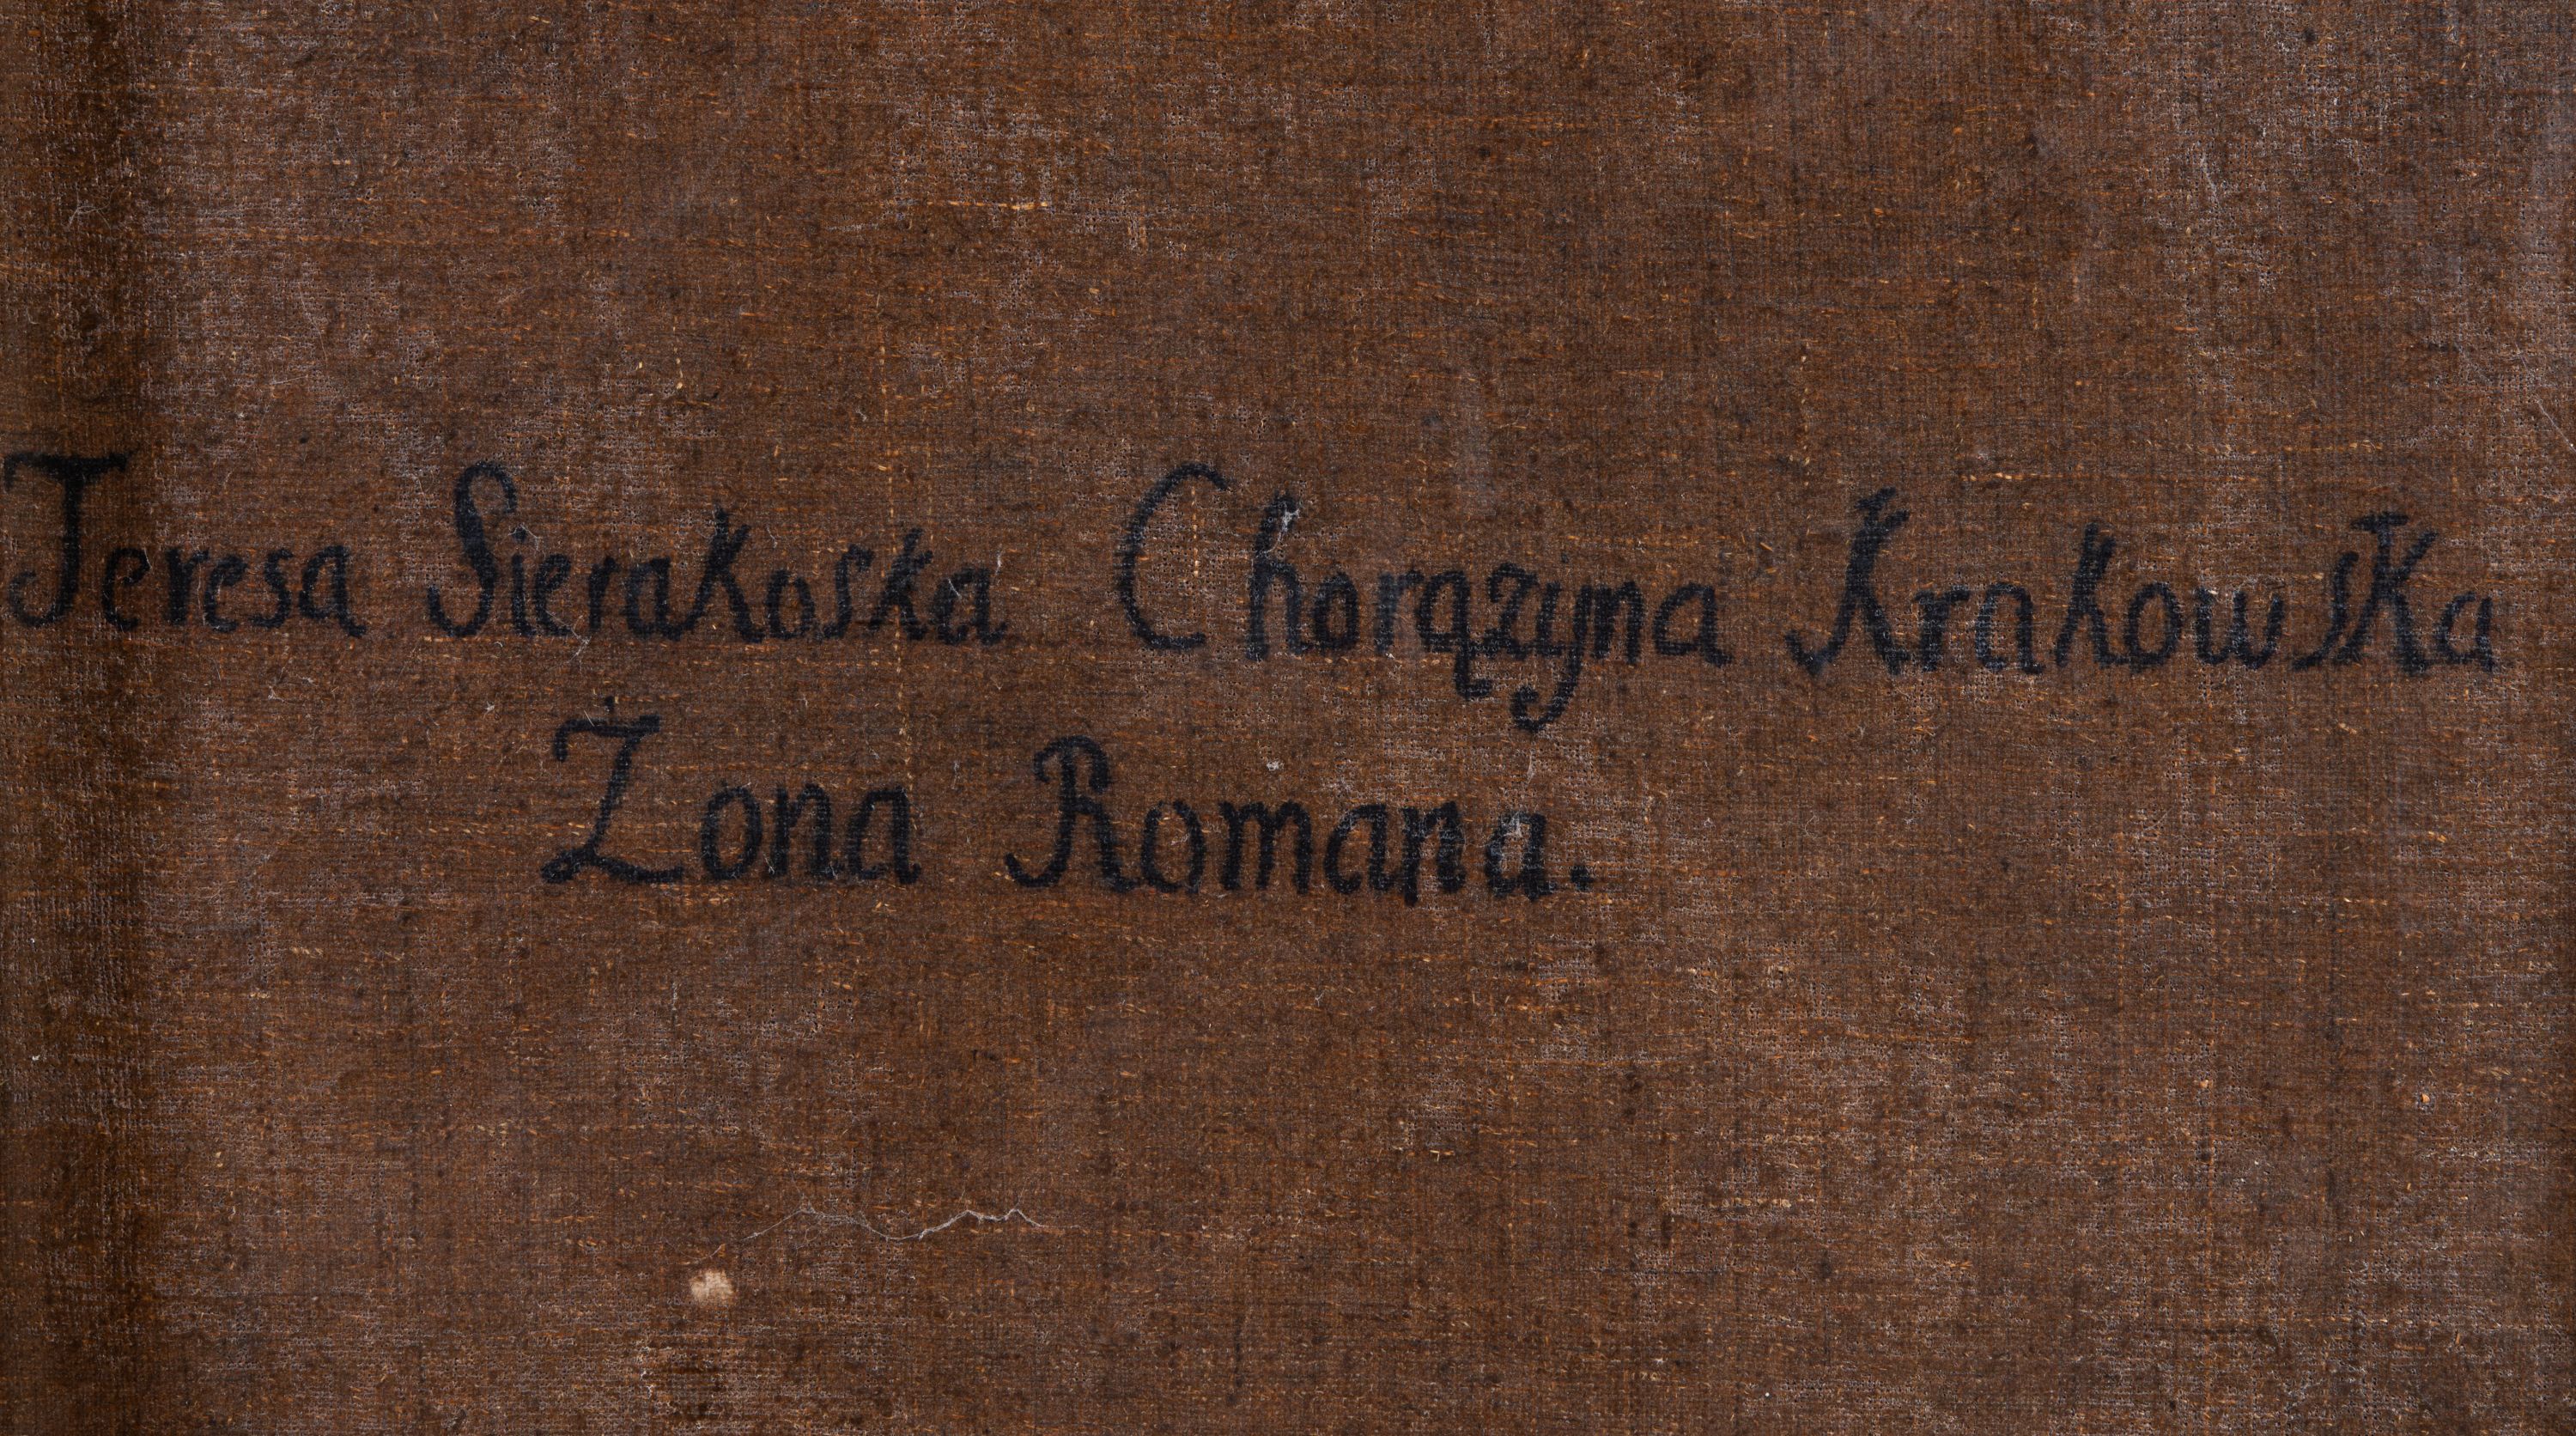 Teresa Sierakoska Chorązyna Krakowska
Żona Romana.